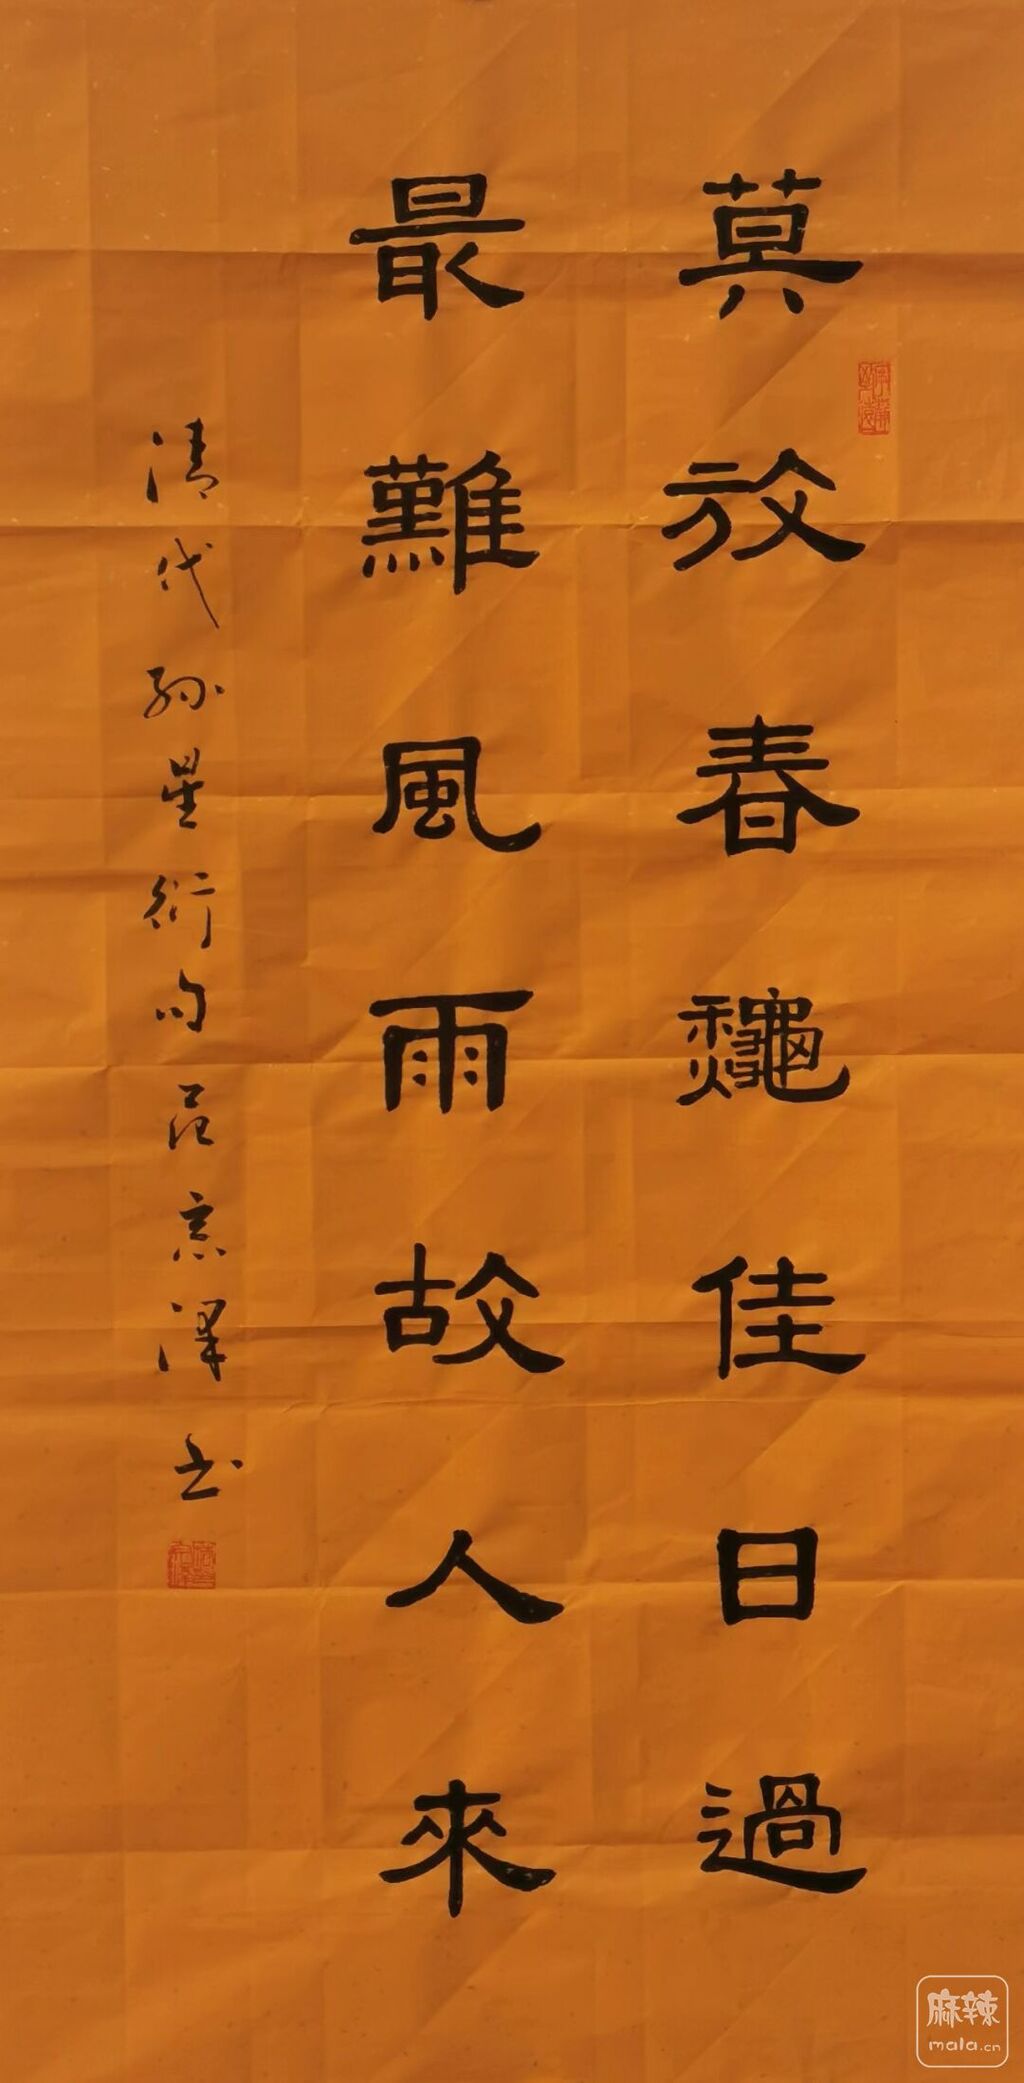 莫放春龝佳日過
最難風雨故人來
清代孫星衍句范宗澤书
麻辣
mala.cn